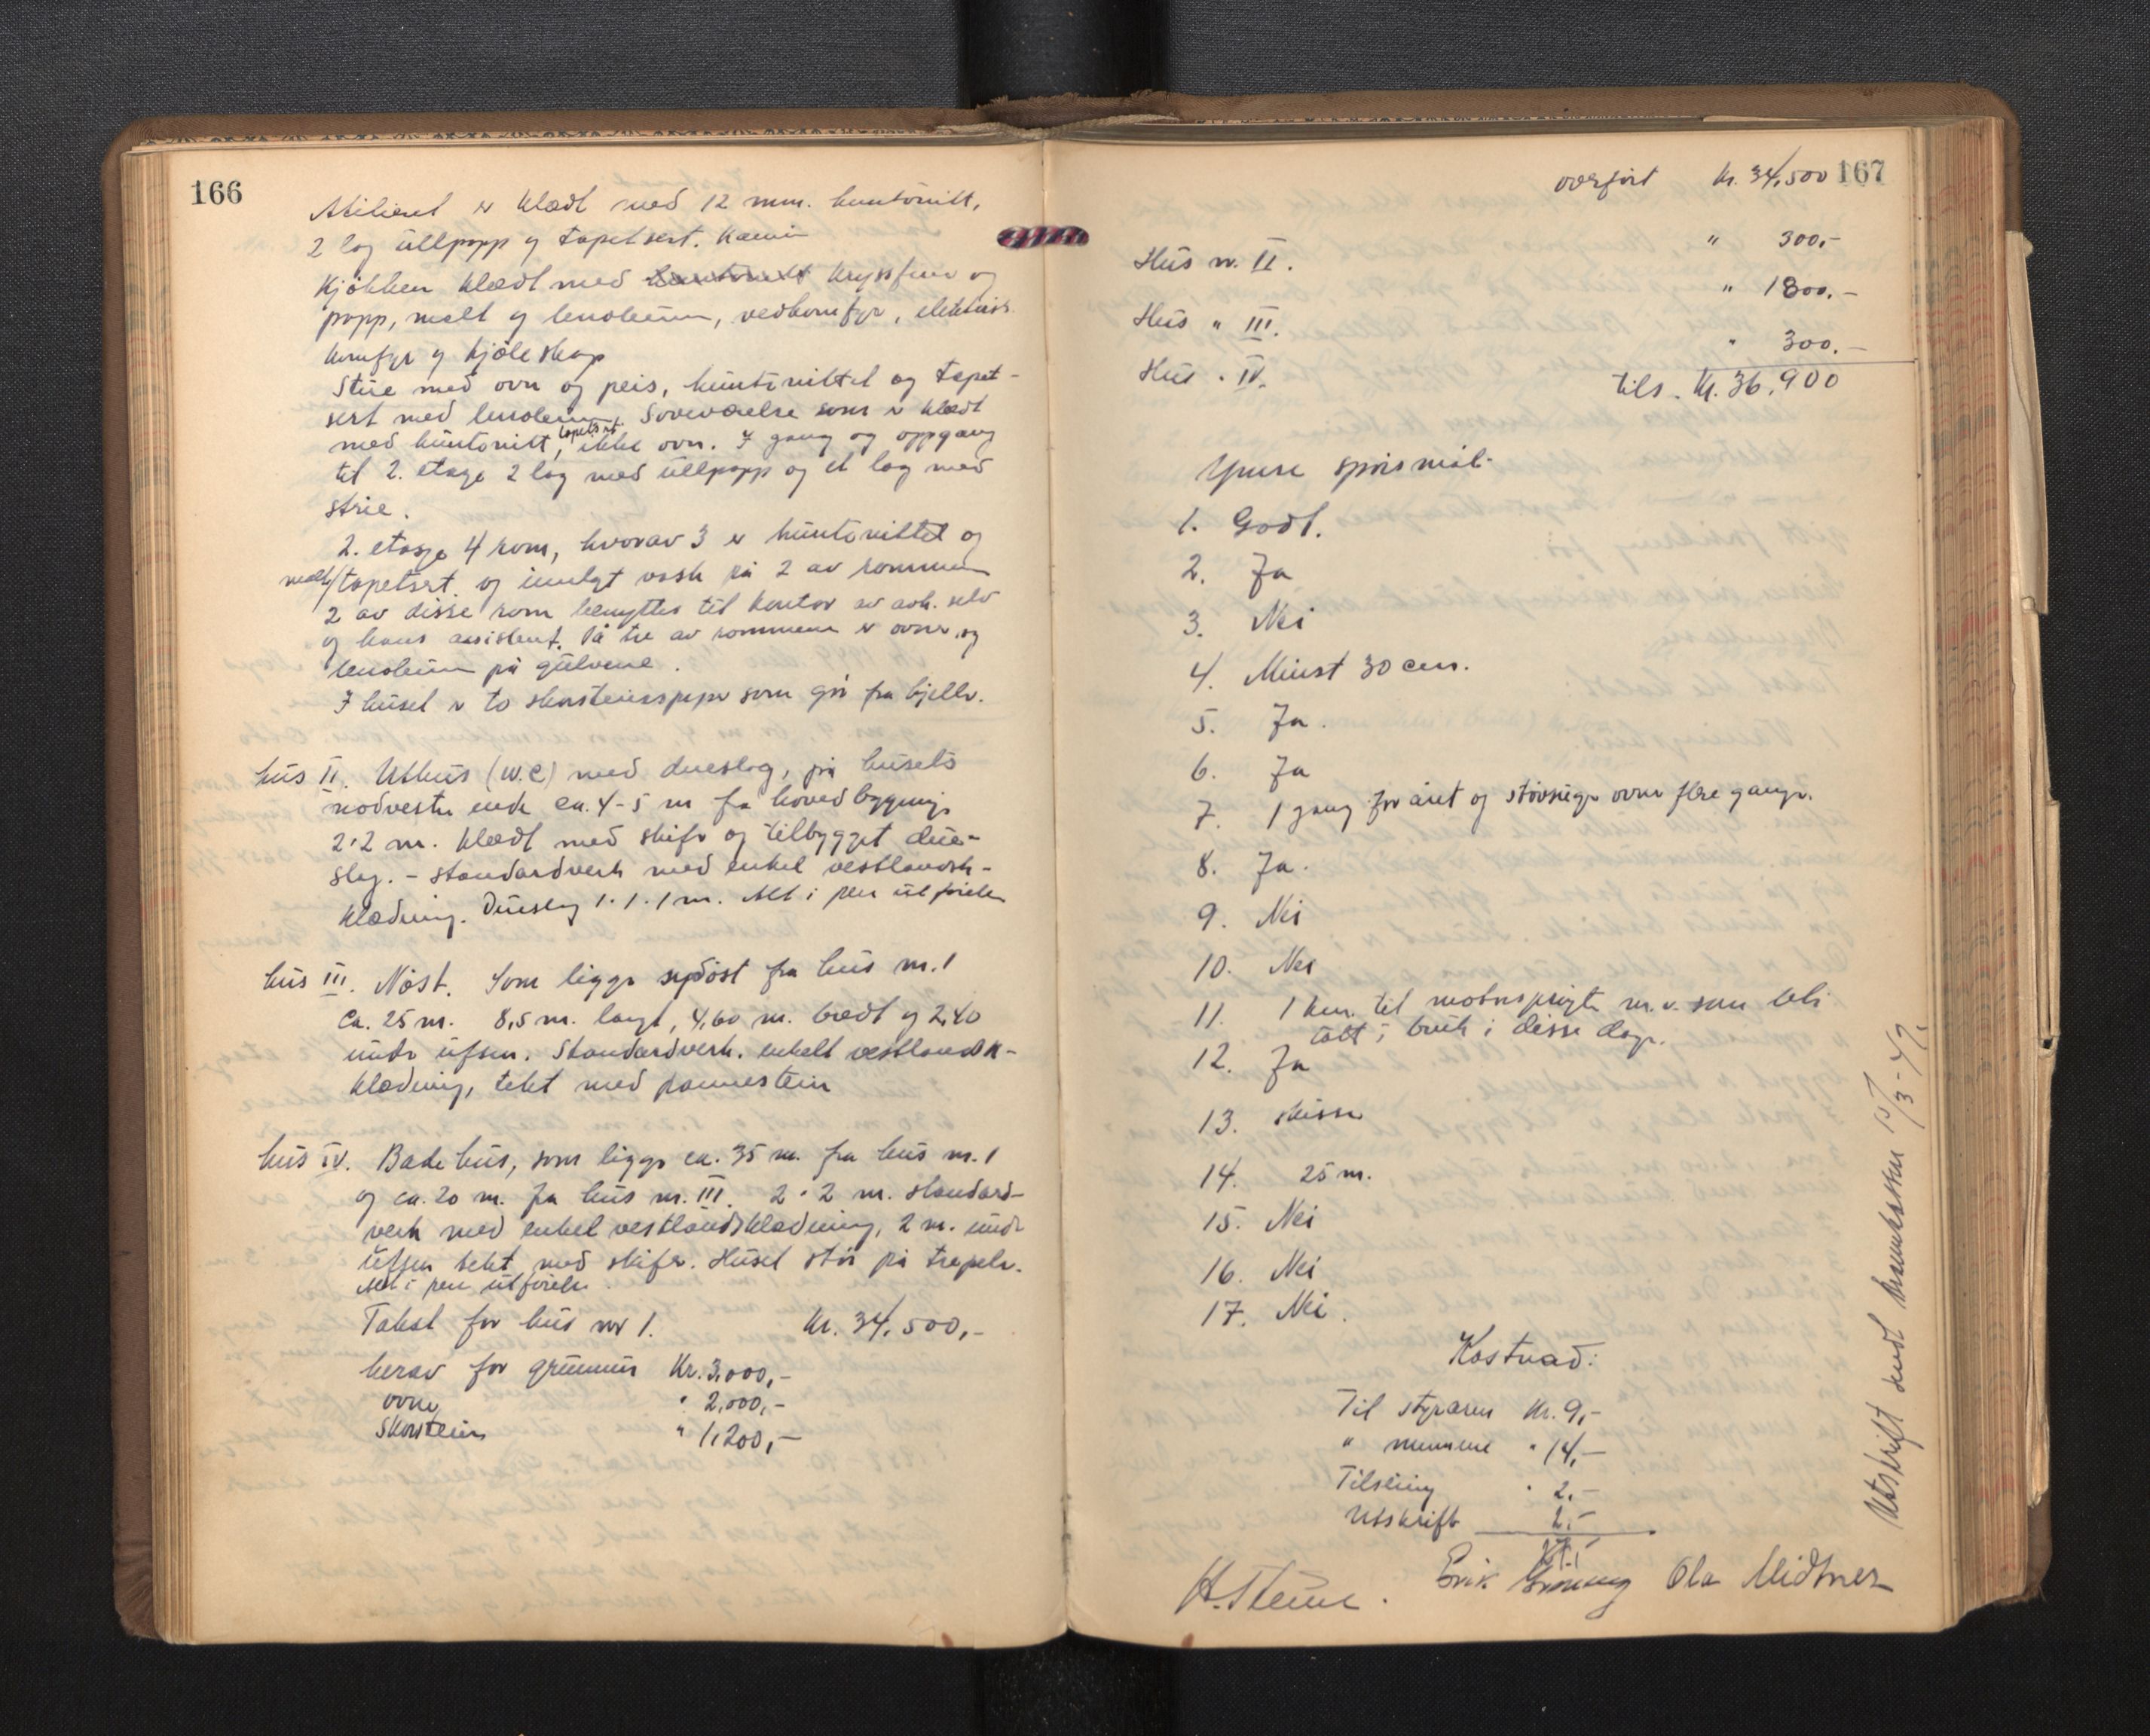 166
Atilieret er klædt med 12 mm. huntonitt,
2 lag ullpapp og tapetsert. Kamin
Kjøkken klædt med huntonitt kryssfiner og
papp, malt og lenoleum, vedkomfyr, elektrisk
komfyr og kjøleskap
Stue med ovn og peis, huntonittet og tapet-
sert med lenoleum. Soveværelse som er klædt
med huntonitt, tapetsert, ikke ovn. I gang og oppgang
til 2. etage 2 lag med ullpapp og et lag med
strie.
2. etasje 4 rom, hvorav 3 er huntonittet og
malt/tapetsert. og innlagt vask på 2 av rommene
2 av disse rom benyttes til kontor av ark. selv
og hans assistent. På tre av rommene er ovner og
lenoleum på gulvene.
I huset er to skorsteinspiper som går fra kjeller.
hus II. Uthus (W.C) med dueslag, på husets
nordvestre ende ca. 4-5 m fra hovedbygning
2·2 m. klædt med skifer og tilbygget due-
slag. - standardverk med enkel vestlandsk-
klædning. Dueslag 1·1·1 m. Alt i pen utførelse
hus III. Nøst. Som ligger sydøst fra hus nr. 1
ca. 25 m. 8,5 m. langt, 4,60 m. bredt og 2,40
under ufsen. Standardverk. enkelt vestlandsk-
klædning, tekt med pannestein
hus IV. Badehus, som ligger ca. 35 m. fra hus nr. 1
og ca. 20 m. fra hus nr. III. 2·2 m. standard-
verk med enkel vestlandsklædning, 2 m. under
ufsen tekt med skifer. Huset står på trepeler.
Alt i pen utførelse.
Takst for hus nr 1. Kr. 34,500,-
herav for grunnmur Kr. 3,000,-
ovner " 2,000,-
Skorstein " 1,200,-
167
overført Kr. 34,500
Hus nr. II. " 300,-
Hus " III. " 1800.-
Hus " IV. " 300.-
tils. Kr. 36,900
Ymse spørsmål.
1. Godt.
2. Ja
3. Nei
4. Minst 30 cm.
5. Ja.
6. Ja
7. 1 gang for året og støvsuger ovner flere ganger.
8. Ja.
9. Nei
10. Nei
11. 1 km. til motorsprøyte m.v. som blir
tatt i bruk i disse dager.
12. Ja
13. skisse
14. 25 m.
15. Nei
16. Nei
17. Nei.
Kostnad:
Til styraren Kr. 9,-
" mennene " 14,-
Tilseiing " 2.-
Utskrift 2.-
H. Steine. Erik Grønning Ola Midtnes
Utskrift sendt brannkassen 15/3-47.